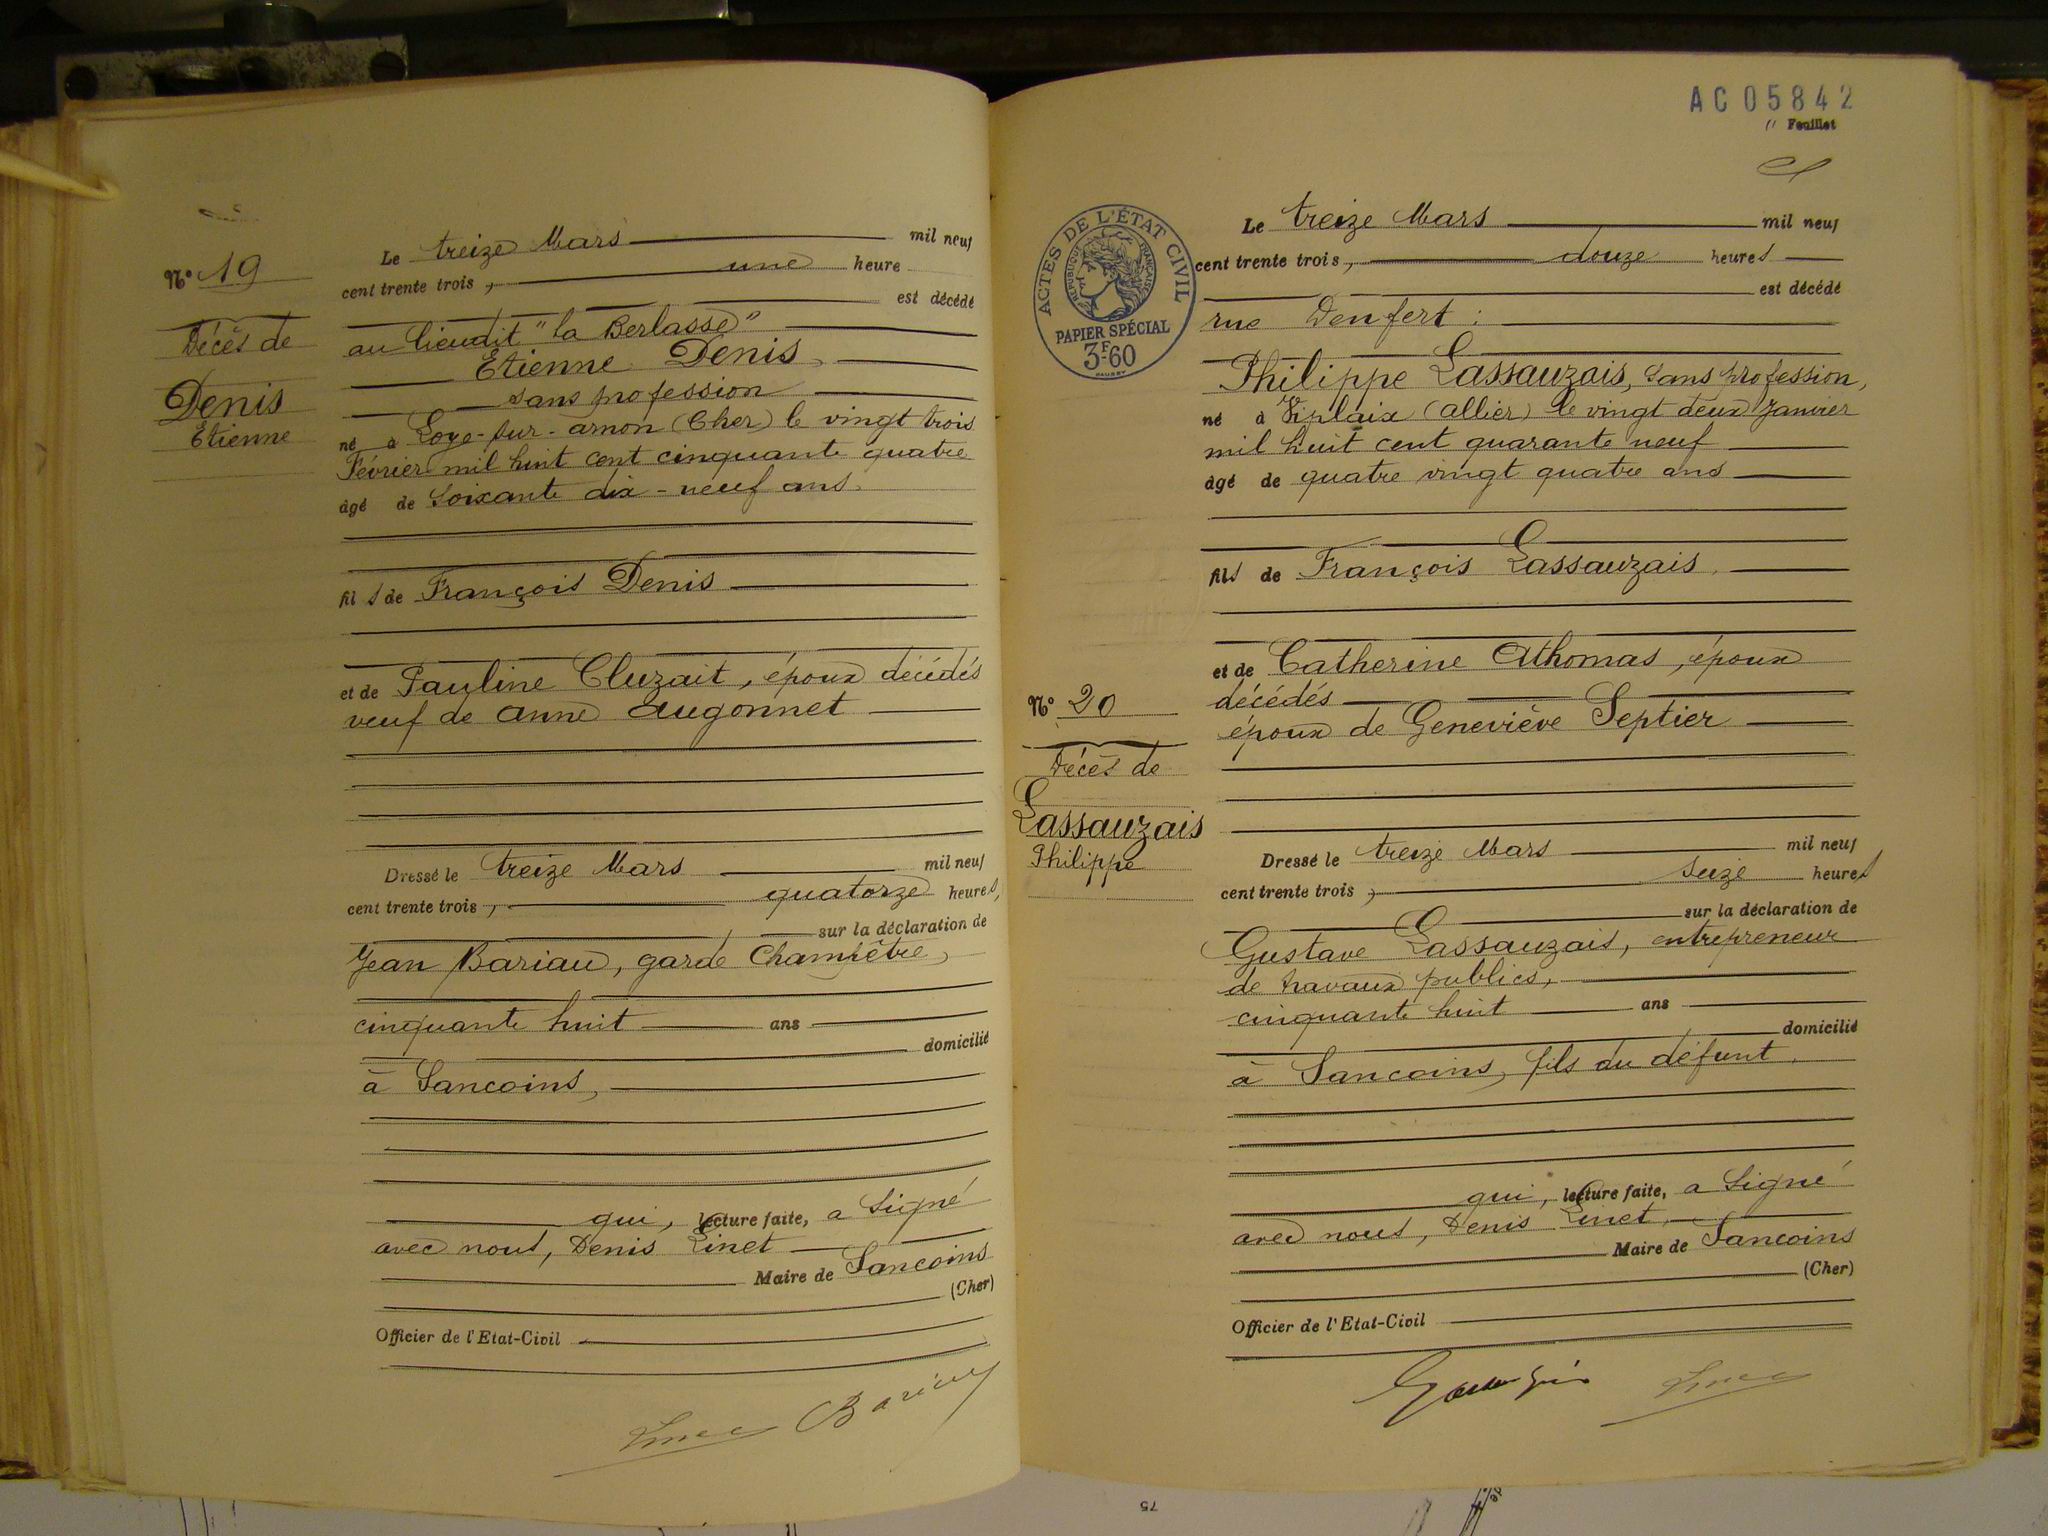 Nº 19
Décès de
Denis
Etienne
Le treize Mars mil neuf
cent trente trois, une heure
est décédé
au lieudit "la Berlasse"
Etienne Denis,
sans profession
né à Loye-sur-arnon (Cher) le vingt trois
Février mil huit cent cinquante quatre
âgé de soixante dix-neuf ans.
fils de François Denis
et de Pauline Cluzait, époux décédés
veuf de Anne Augonnet
Dressé le treize Mars mil neuf
cent trente trois, quatorze heures,
sur la déclaration de
Jean Bariau, garde Champêtre,
cinquante huit ans
domicilié
à Sancoins,
qui, lecture faite, a signé
avec nous, Denis Linet
Maire de Sancoins
(Cher)
Officier de l'Etat-Civil
Bariau
AC 05842
Feuillet
ACTES DE L'ÉTAT CIVIL
RÉPUBLIQUE FRANÇAISE
PAPIER SPÉCIAL
3F60
Nº 20
Décès de
Lassauzais
Philippe
Le treize Mars mil neuf
cent trente trois, douze heures
est décédé
rue Denfert :
Philippe Lassauzais, sans profession,
né à Viplaix (allier) le vingt deux Janvier
mil huit cent quarante neuf
âgé de quatre vingt quatre ans
fils de François Lassauzais.
et de Catherine Athomas, époux
décédés
époux de Geneviève Septier
Dressé le treize Mars mil neuf
cent trente trois, seize heures
sur la déclaration de
Gustave Lassauzais, entrepreneur
de travaux publics,
cinquante huit ans
domicilié
à Sancoins, fils du défunt.
qui, lecture faite, a signé
avec nous, Denis Linet,
Maire de Sancoins
(Cher)
Officier de l'Etat-Civil
75